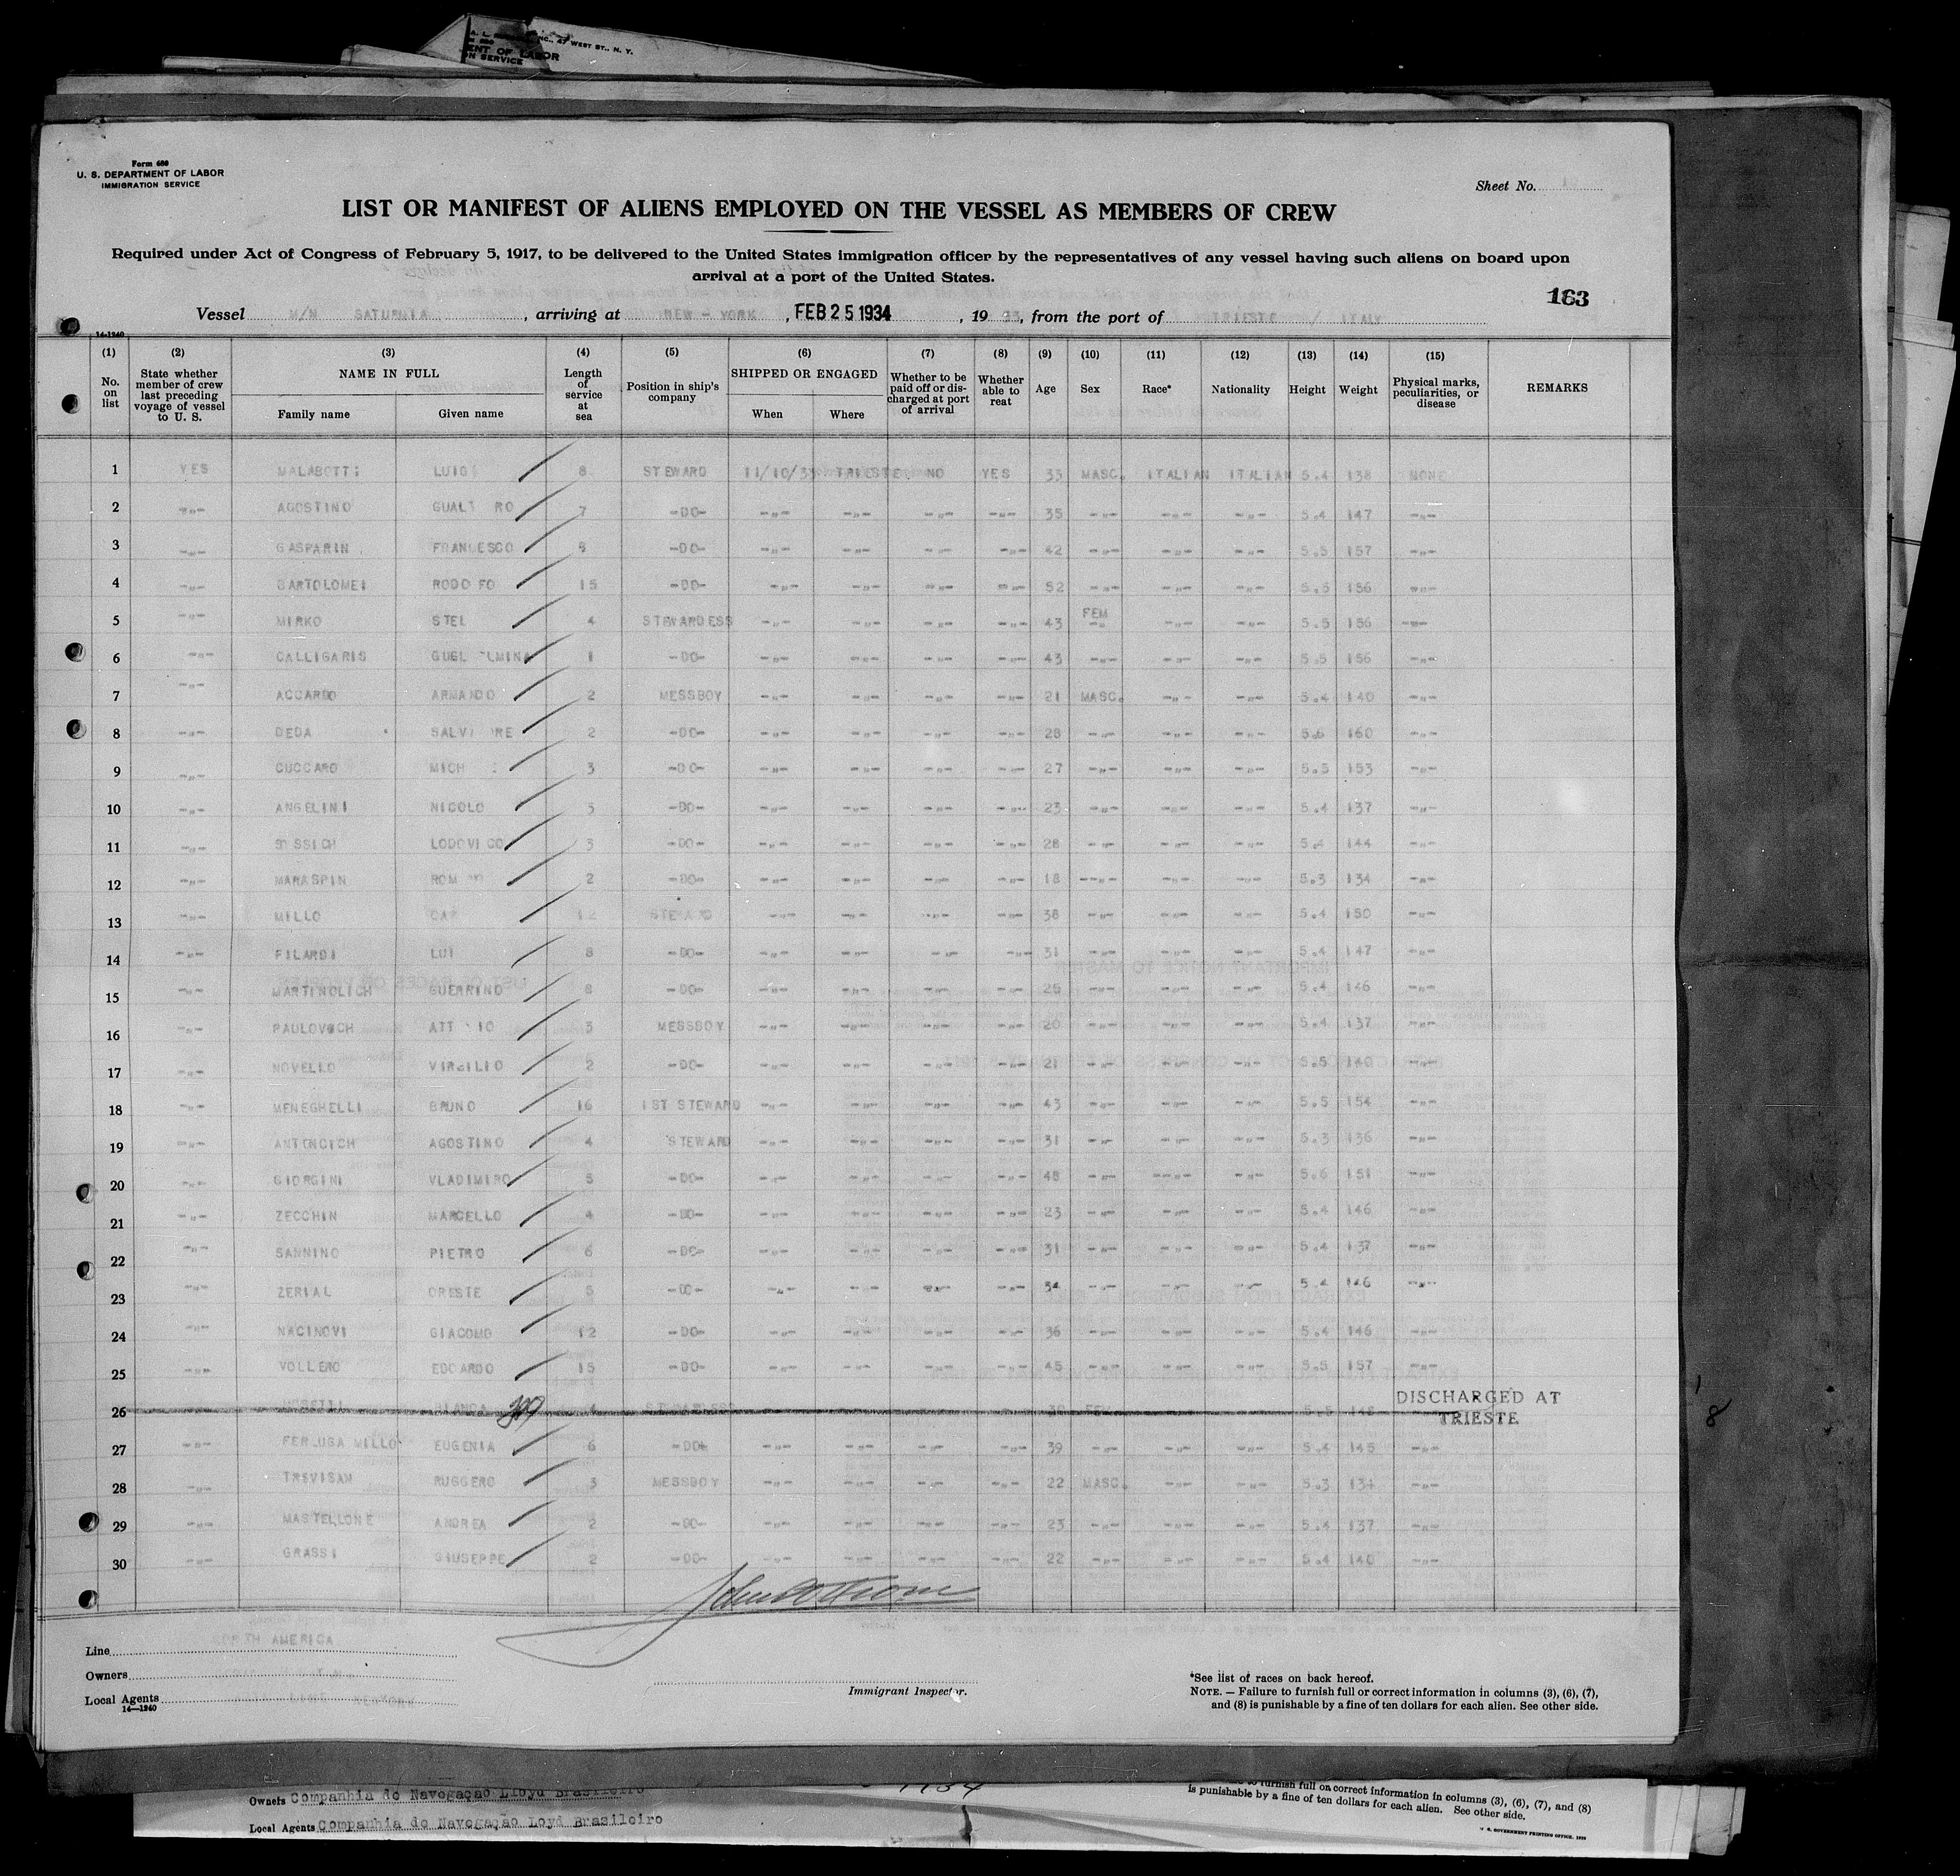 A. L.
INC., 47 WEST ST., N. Y.
ENT OF LABOR
ON SERVICE
Form 680
U. S. DEPARTMENT OF LABOR
IMMIGRATION SERVICE
Sheet No.
LIST OR MANIFEST OF ALIENS EMPLOYED ON THE VESSEL AS MEMBERS OF CREW
Required under Act of Congress of February 5, 1917, to be delivered to the United States immigration officer by the representatives of any vessel having such aliens on board upon
arrival at a port of the United States.
163
Vessel M/N SATURNIA, arriving at NEW-YORK, FEB 25 1934, 19 33, from the port of TRIESTE / ITALY
14-1240
(1) (2) (3) (4) (5) (6) (7) (8) (9) (10) (11) (12) (13) (14) (15)
No. on list | State whether member of crew last preceding voyage of vessel to U. S. | NAME IN FULL | Family name | Given name | Length of service at sea | Position in ship's company | SHIPPED OR ENGAGED | When | Where | Whether to be paid off or discharged at port of arrival | Whether able to reat | Age | Sex | Race* | Nationality | Height | Weight | Physical marks, peculiarities, or disease | REMARKS
1 YES MALABOTTI LUIGI 8 STEWARD 11/10/33 TRIESTE NO YES 33 MASC. ITALIAN ITALIAN 5.4 138 NONE
2 -"- AGOSTINO 7 -DO- -"- -"- -"- -"- 35 -"- -"- -"- 5.4 147 -"-
3 -"- GASPARIN FRANCESCO -DO- -"- -"- -"- -"- 42 -"- -"- -"- 5.5 157 -"-
4 -"- BARTOLOMEI RODO FO 15 -DO- -"- -"- -"- -"- 52 -"- -"- -"- 5.5 156 -"-
5 -"- MIRKO STEL 4 STEWARDESS -"- -"- -"- -"- 43 FEM -"- -"- -"- 5.5 156 -"-
6 -"- CALLIGARIS 1 -DO- -"- -"- -"- -"- 43 -"- -"- -"- 5.5 156 -"-
7 -"- ACCARDO ARMANDO 2 MESSBOY -"- -"- -"- -"- 21 MASC. -"- -"- 5.4 140 -"-
8 -"- DEDA 2 -DO- -"- -"- -"- -"- 28 -"- -"- -"- 160 -"-
9 -"- CUCCARO MICH 3 -DO- -"- -"- -"- -"- 27 -"- -"- -"- 5.5 153 -"-
10 -"- ANGELINI NICOLO 3 -DO- -"- -"- -"- -"- 23 -"- -"- -"- 5.4 137 -"-
11 -"- LODOVICO 3 -DO- -"- -"- -"- -"- 28 -"- -"- -"- 5.4 144 -"-
12 -"- MARASPIN ROM 2 -DO- -"- -"- -"- -"- 18 -"- -"- -"- 5.3 134 -"-
13 -"- MILLO CAR 12 STEWARD -"- -"- -"- -"- 38 -"- -"- -"- 5.4 150 -"-
14 -"- FILARDI LUI 8 -DO- -"- -"- -"- -"- 31 -"- -"- -"- 5.4 147 -"-
15 -"- MARTINOLICH GUERRINO 8 -DO- -"- -"- -"- -"- -"- -"- -"- 5.4 146 -"-
16 -"- PAULOVICH ATT IO 3 MESSBOY -"- -"- -"- -"- 20 -"- -"- -"- 5.4 137 -"-
17 -"- NOVELLO VIRGILIO 2 -DO- -"- -"- -"- -"- 21 -"- -"- -"- 5.5 140 -"-
18 -"- MENEGHELLI BRUNO 16 1ST STEWARD -"- -"- -"- -"- 43 -"- -"- -"- 5.5 154 -"-
19 -"- ANTONCICH AGOSTINO 4 STEWARD -"- -"- -"- -"- 31 -"- -"- -"- 5.3 136 -"-
20 -"- GIORGINI VLADIMIRO 5 -DO- -"- -"- -"- -"- 48 -"- -"- -"- 5.6 151 -"-
21 -"- ZECCHIN MARCELLO 4 -DO- -"- -"- -"- -"- 23 -"- -"- -"- 5.4 146 -"-
22 -"- SANNINO PIETRO 6 -DO- -"- -"- -"- -"- 31 -"- -"- -"- 5.4 137 -"-
23 -"- ZERIAL ORESTE 5 -DO- -"- -"- -"- -"- 34 -"- -"- -"- 5.4 146 -"-
24 -"- NACINOVI GIACOMO 12 -DO- -"- -"- -"- -"- 36 -"- -"- -"- 5.4 146 -"-
25 -"- VOLLENO EDOARDO 15 -DO- -"- -"- -"- -"- 45 -"- -"- -"- 5.5 157 -"-
26 BIANCA 4 STEWARDESS FEM DISCHARGED AT
TRIESTE
27 -"- FERLUGA MILLO EUGENIA 6 -DO- -"- -"- -"- -"- 39 -"- -"- -"- 5.4 145 -"-
28 -"- TREVISAN RUGGERO 3 MESSBOY -"- -"- -"- -"- 22 MASC. -"- -"- 5.3 134 -"-
29 -"- MASTELLONE ANDREA 2 -DO- -"- -"- -"- -"- 23 -"- -"- -"- 5.4 137 -"-
30 -"- GRASSI GIUSEPPE 2 -DO- -"- -"- -"- -"- 22 -"- -"- -"- 5.4 140 -"-
Line NORTH AMERICA
Owners
Local Agents
14-1240
Immigrant Inspector.
*See list of races on back hereof.
NOTE. — Failure to furnish full or correct information in columns (3), (6), (7),
and (8) is punishable by a fine of ten dollars for each alien. See other side.
Owners Companhia de Navegação Lloyd Brasileiro
Local Agents Companhia de Navegação Loyd Brasileiro
1934
to furnish full or correct information in columns (3), (6), (7), and (8)
is punishable by a fine of ten dollars for each alien. See other side.
GOVERNMENT PRINTING OFFICE